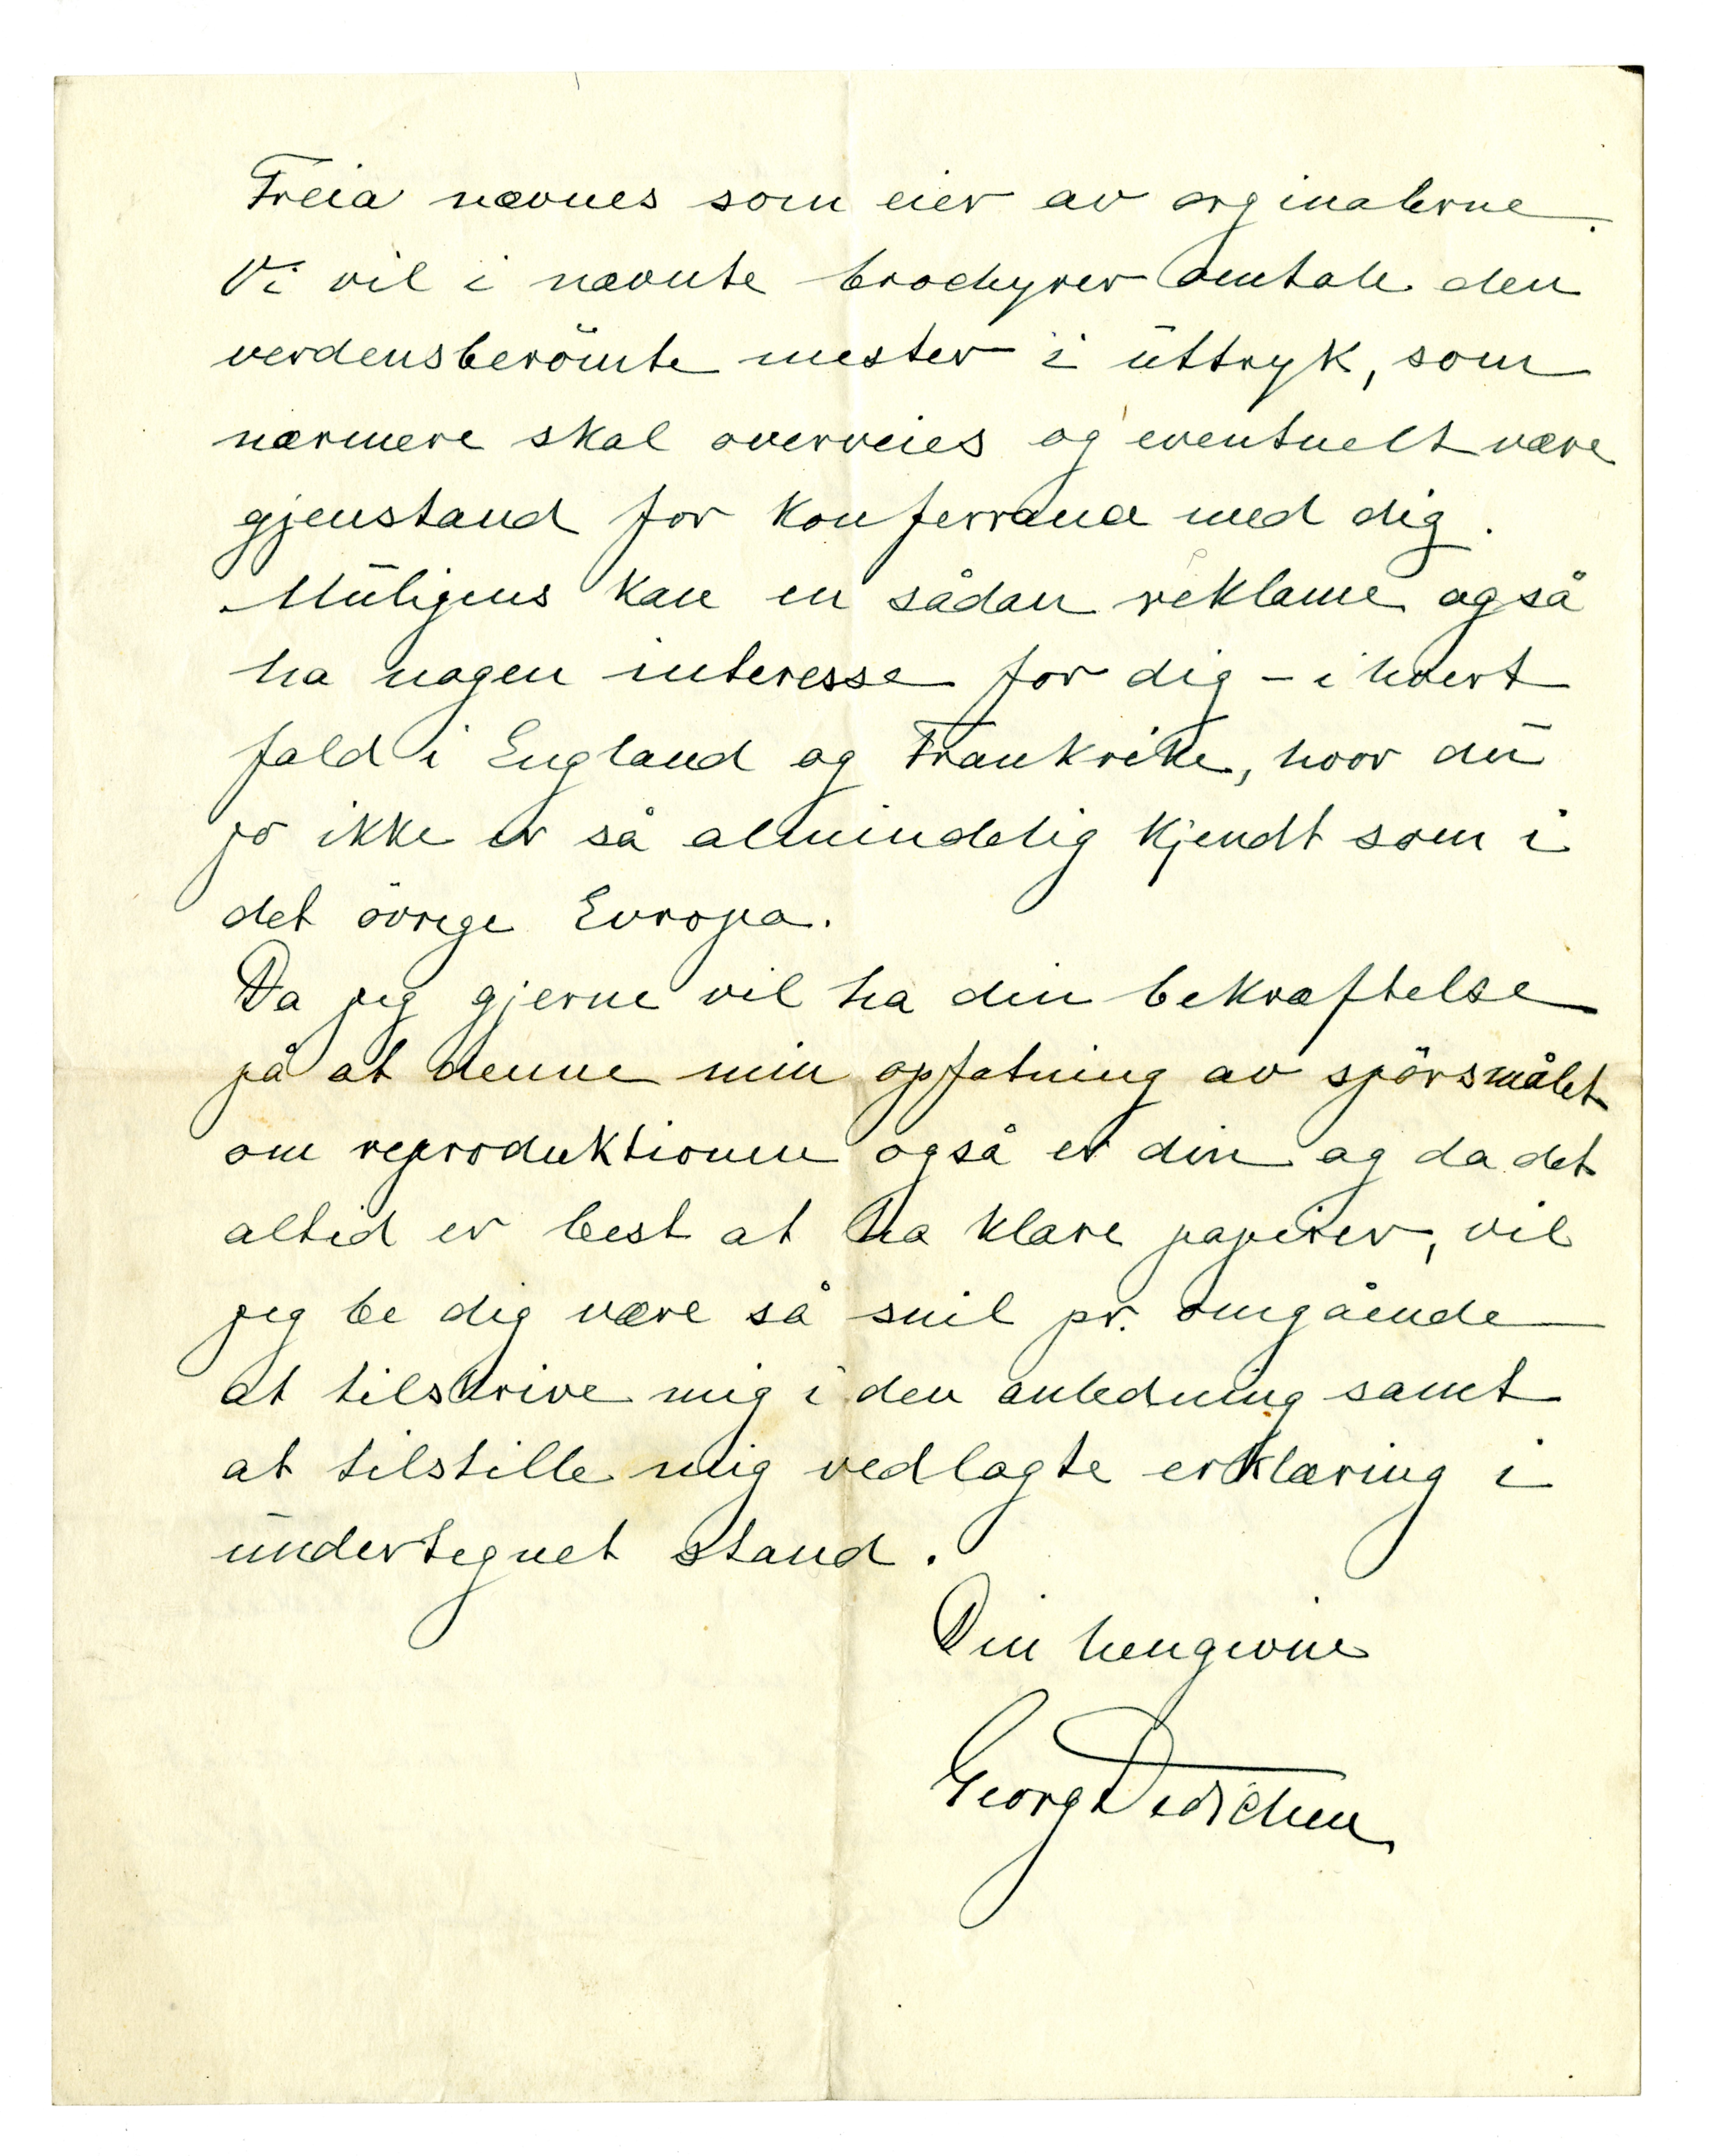 Freia nævnes som eier av orginalerne.
Vi vil i nævnte brochyrer omtale den
verdensberömte mester i uttryk, som
nærmere skal overveies og eventuelt være
gjenstand for konferrance med dig.
Muligens kan en sådan reklame også
ha nogen interesse for dig – i hvert
fald i England og Frankrike, hvor du
jo ikke er så almindelig kjendt som i
det övrige Evropa.
Da jeg gjerne vil ha din bekræftelse
på at denne min opfatning av spörsmålet
om reproduktionen også er din og da det
altid er best at ha klare papirer, vil
jeg be dig være så snil pr. omgående
at tilskrive mig i den anledning samt
at tilstille mig vedlagte erklæring i
undertegnet stand.
Din hengivne
Georg Dedichen